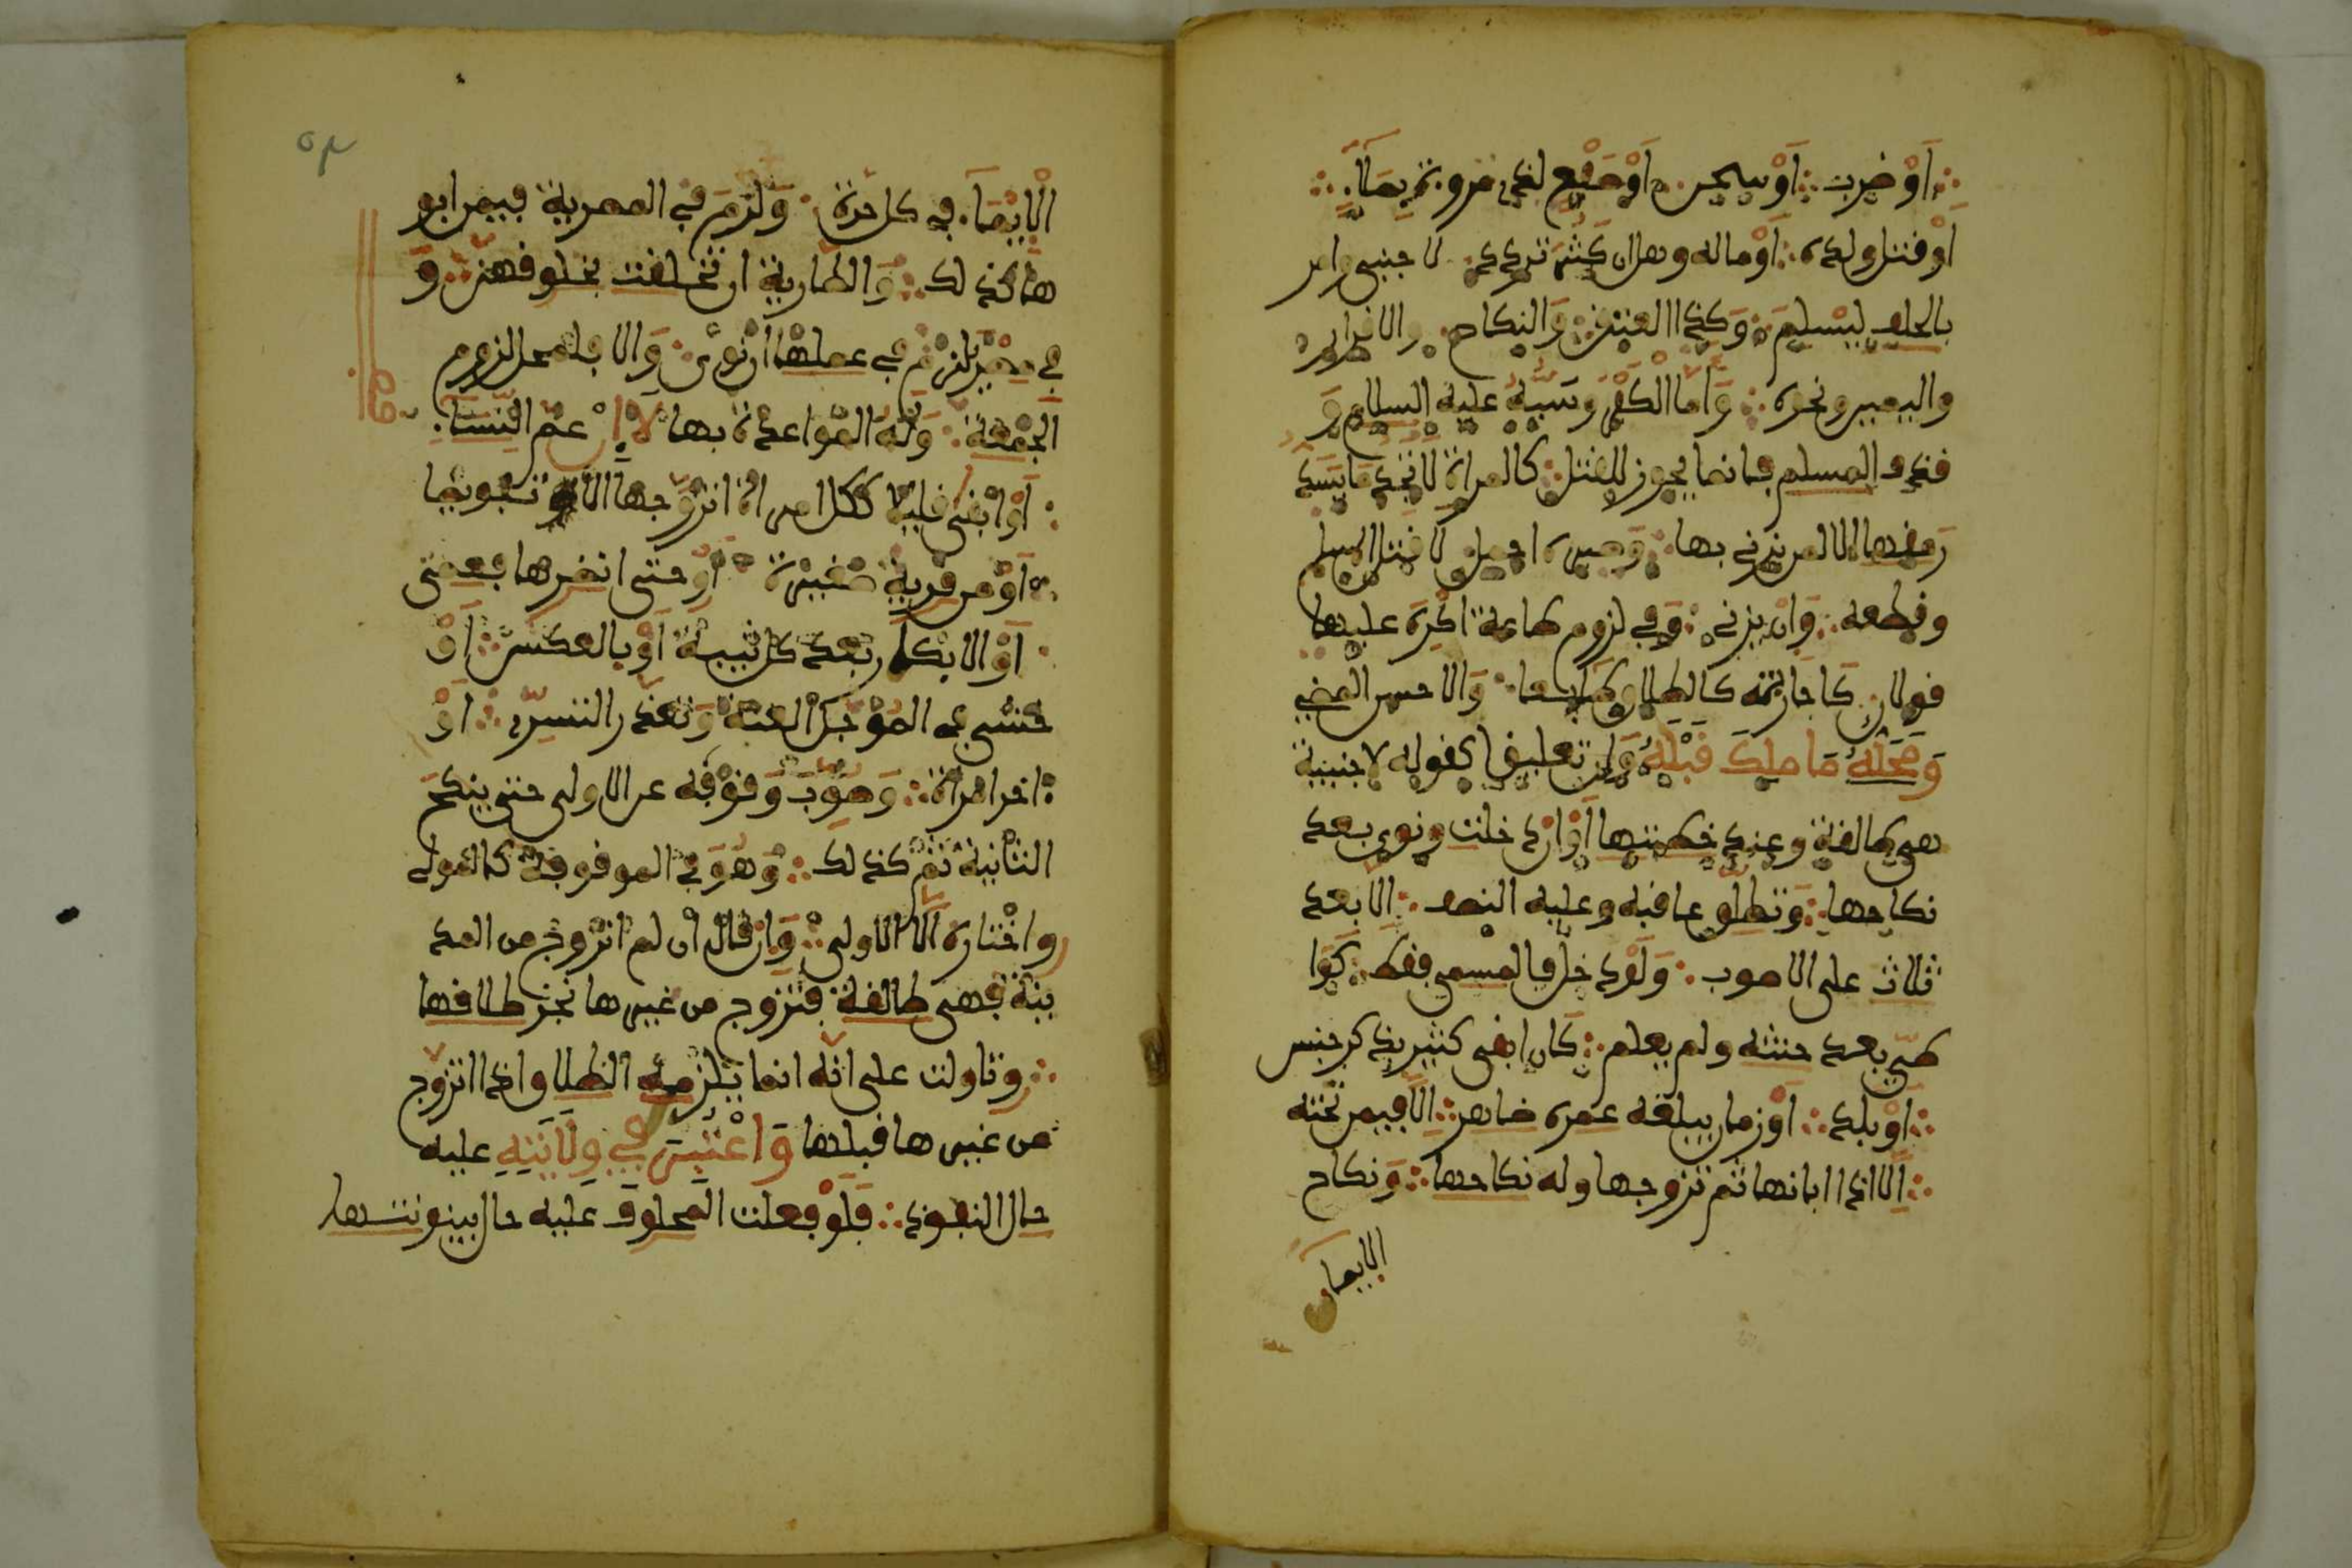 أو ضرب أو سجن أو صفع لذي مروءة بملإ
أو قتل ولده أو ماله وهل إن كثر تردد لا أجنبي وأمر
بالحلف ليسلم وكذا العتق والنكاح والاقرار
واليمين ونحوه وأما الكفر وسبه عليه السلام و
قذف المسلم فإنما يجوز للقتل كالمرأة لا تجد ما يسد
رمقها إلا لمن يزني بها وصبره أجمل لا قتل المسلم
وقطعه وأن يزني وفي لزوم طاعة أكره عليها
قولان كإجازته كالطلاق طايعا والأحسن المضي
ومحله ما ملك قبله وإن تعليقا كقوله لأجنبية
هي طالق عند خطبتها أو إن دخلت ونوى بعد
نكاحها وتطلق عاقبه وعليه النصف إلا بعد
ثلاث على الأصوب ولو دخل فالمسمى فقط كوا
طئ بعد حنثه ولم يعلم كأن أبقى كثيرا بذكر جنس
أو بلد أو زمان يبلغه عمره ظاهر إلا فيمن تحته
إلا إذا أبانها ثم تزوجها وله نكاحها ونكاح
الإيماء
٥٣
الإيماء في كل حرة ولزم في المصرية فيمن أبو
ها كذلك والطارية إن تخلقت بخلقهن و
في مصر يلزم في عملها إن نوى وإلا فلمحل لزوم
الجمعة وله المواعدة بها لا إن عم النساء
أو أبقى قليلا ككل امرأة أتزوجها إلا تفويضا
أو من قرية صغيرة أو حتى أنظرها فعمي
أو الأبكار بعد كل ثيب أو بالعكس أو
خشي في المؤجل العنت وتعذر التسري أو
آخر امرأة وصوب وقوفه عن الأولى حتى ينكح
الثانية ثم كذلك وهو في الموقوفة كالمولي
واختاره إلا الأولى وإن قال إن لم أتزوج من المد
ينة فهي طالق فتزوج من غيرها نجز طلاقها
وتأولت على أنه إنما يلزمه الطلاق إذا تزوج
من غيرها قبلها واعتبر في ولايته عليه
حال النفوذ فلو فعلت المحلوف عليه حال بينونتها